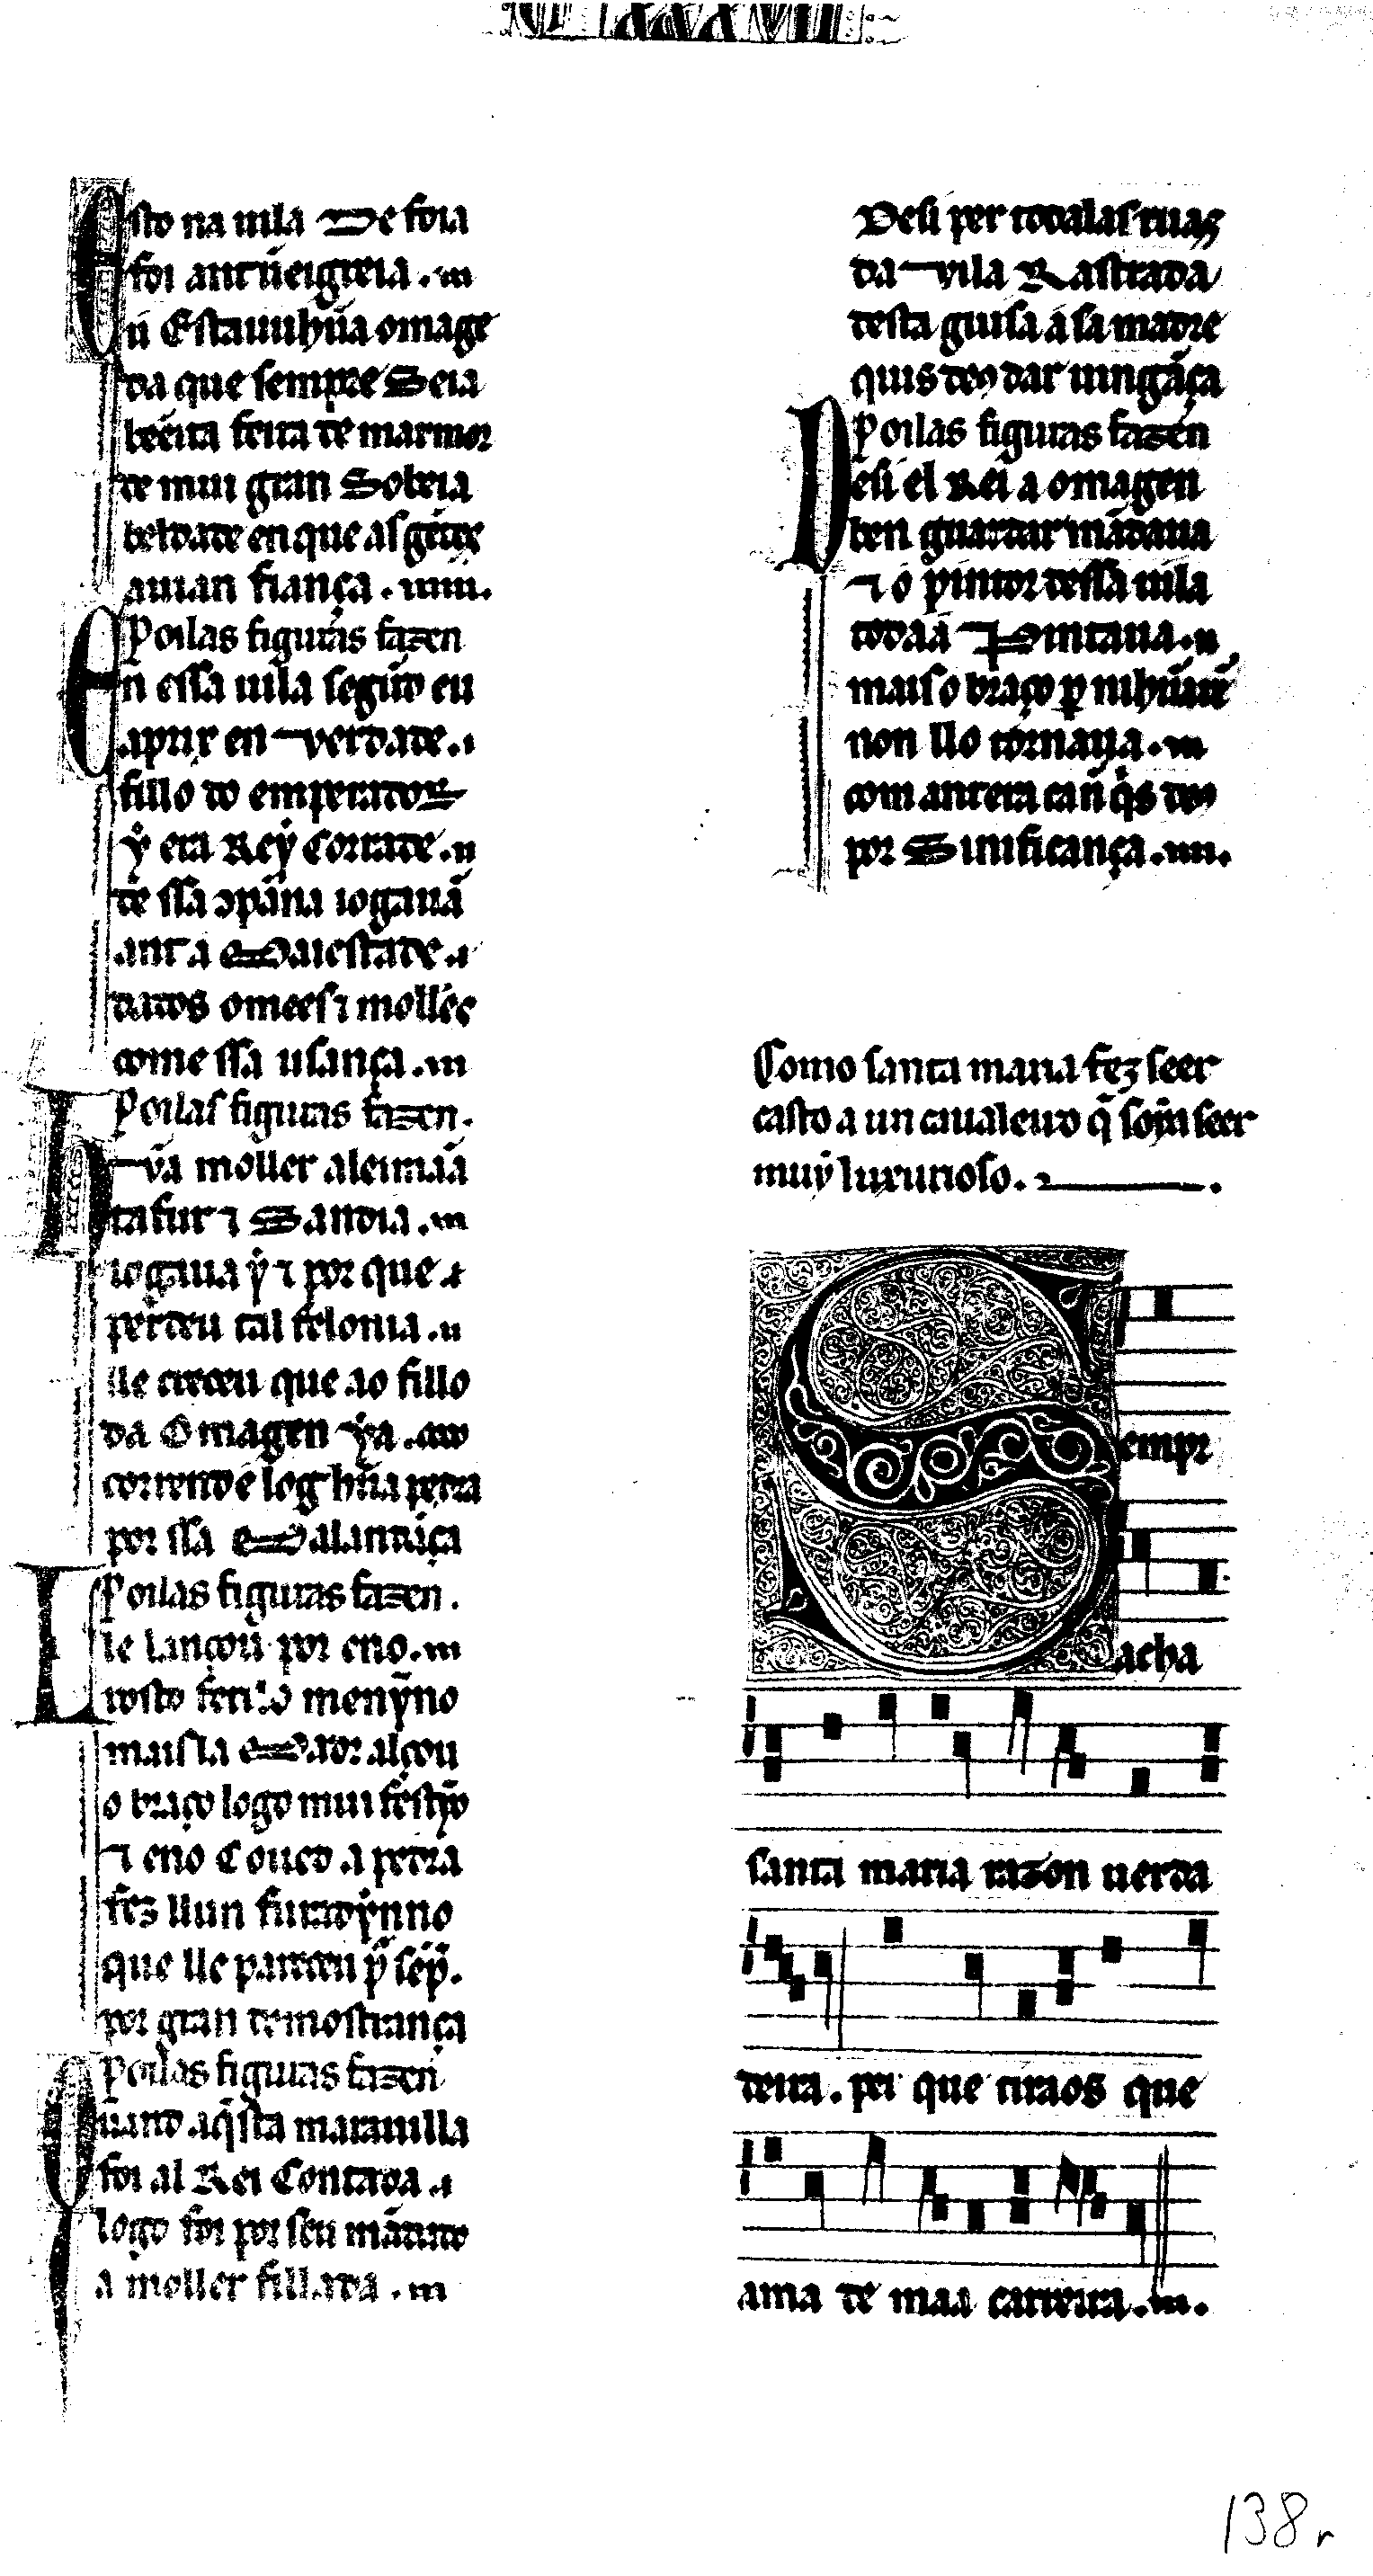 CXXXVII
Esto na uila De foia
foi ant ũ eigreia . m
ũ Estauu hũa omage
da que sempre Seia
bẽeita feita de marmor
de mui gran Sobeia
beldade en que as gẽtes
auian fiança . mm.
Poilas figuras fazen
En essa uila segũdo eu
aprix en verdade . i
fillo do emperador
ẏ era Reẏ Corrade . n
de ssa ɔpãna iogauã
ant a Maiestade . i
dados omees ⁊ molleres
come ssa usança . m
Poilas figuras fazen .
Hũa moller aleimãa
tafur ⁊ Sandia . m
iogaua ẏ ⁊ por que . i
perdeu tal felonia . n
lle creceu que ao fillo
da Omagen ẏa .
correndo e log hũa pedra
por ssa Malandãça
Poilas figuras fazen .
Lle lançou por eno . m
rosto ferir o menẏno
mais la Madr alçou
o braço logo mui festỹo
⁊ eno Coued a pedra
fez llun furadẏnno
que lle pareceu p̃ sẽp̃.
por gran demostrança
Poilas figuras fazen
Quand aq̃sta marauilla
foi al Rei Contada . i
logo foi por seu mãdado
a moller fillada . m
Desi per todalas ruas
da vila Rastrada
desta guisa a sa madre
quis de9 dar uingãça
Poilas figuras fazen
Desi el Rei a omagen
ben guardar mãdaua
⁊ o pintor dessa uila
toda a Pintaua . n
mais o braço ꝑ nihũ ren
non llo tornaua . m
com anteira cañ q̇s deus
por Sinificança . mm.
Como santa maria fez seer
casto a un caualeiro q̃ soỹa seer
muẏ luxurioso .
Sempr
acha
santa maria razon uerda
deira . per que tiraos que
ama de maa carreira . m .
138 r